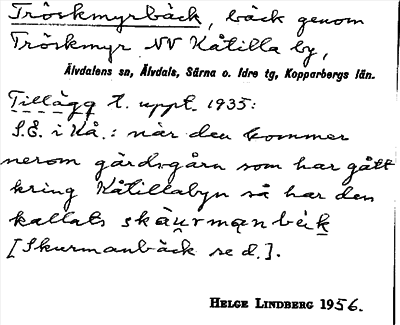 Tröskmyrbäck, bäck genom
Tröskmyr NV Kåtilla by,
Älvdalens sn, Älvdals, Särna o. Idre tg, Kopparbergs län.
Tillägg t. uppt. 1935:
S.E. i Kå.: när den kommer
nerom gärdsgårn som har gått
kring Kåtillabyn så har den
kallats skäurmanbäik
[Skurmanbäck se d.].
HELGE LINDBERG 1956.